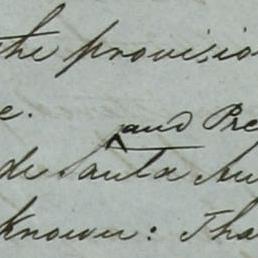 the provisio
e.
and Pre
de Santa An
known: Tha